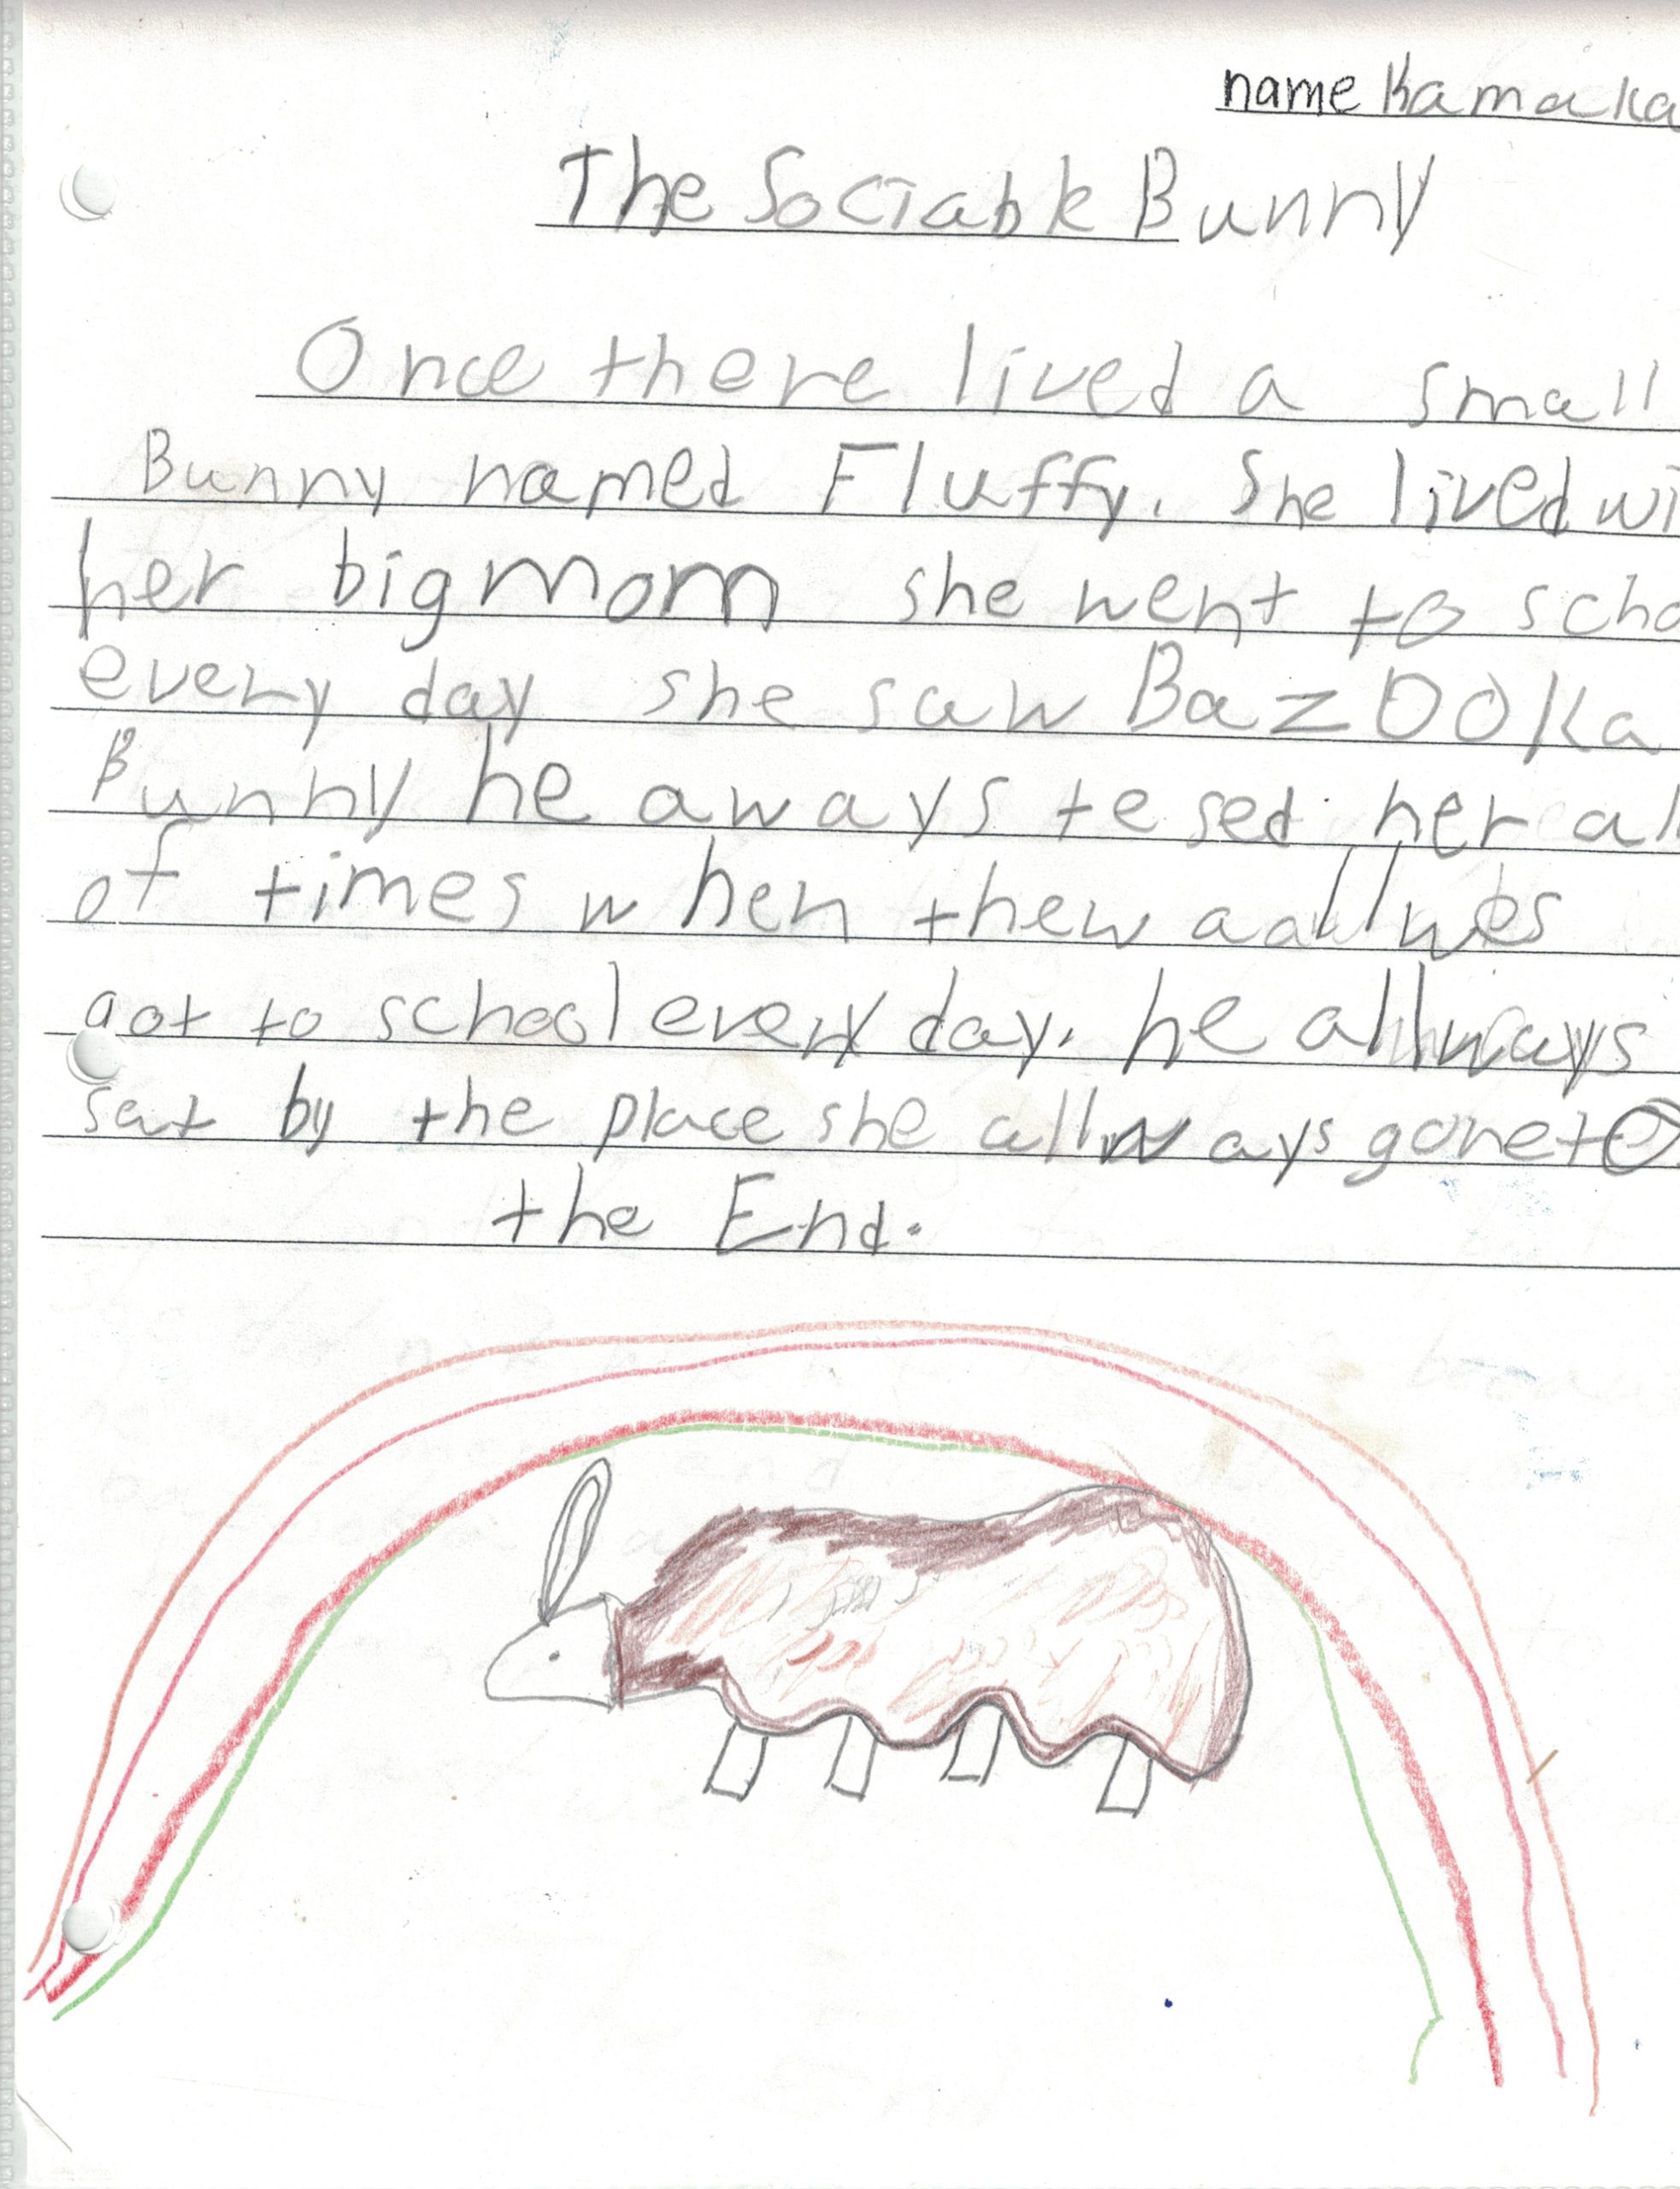 name Kamaka
The Sociable Bunny
Once there lived a small
Bunny named Fluffy. She lived wi
her big mom she went to scho
every day she saw Bazooka
Bunny he aways tesed her al
of times when thew
got to school every day. he allways
sat by the place she allways gone to
the End.